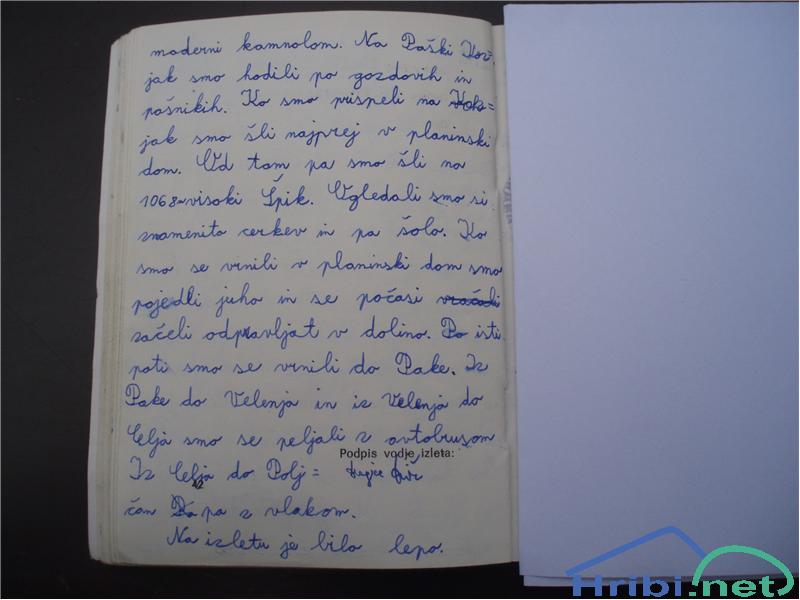 moderni kamnolom. Na Paški Koz=
jak smo hodili po gozdovih in
pašnikih. Ko smo prispeli na Koz=
jak smo šli najprej v planinski
dom. Od tam pa smo šli na
1068m visoki Špik. Ogledali smo si
znamenito cerkev in pa šolo. Ko
smo se vrnili v planinski dom smo
pojedli juho in se počasi vračali
začeli odpravljat v dolino. Po isti
poti smo se vrnili do Pake. Iz
Pake do Velenja in iz Velenja do
Celja smo se peljali z avtobusom
Podpis vodje izleta:
Iz Celja do Polj=
čan pa z vlakom.
Na izletu je bilo lepo.
Hribi.net